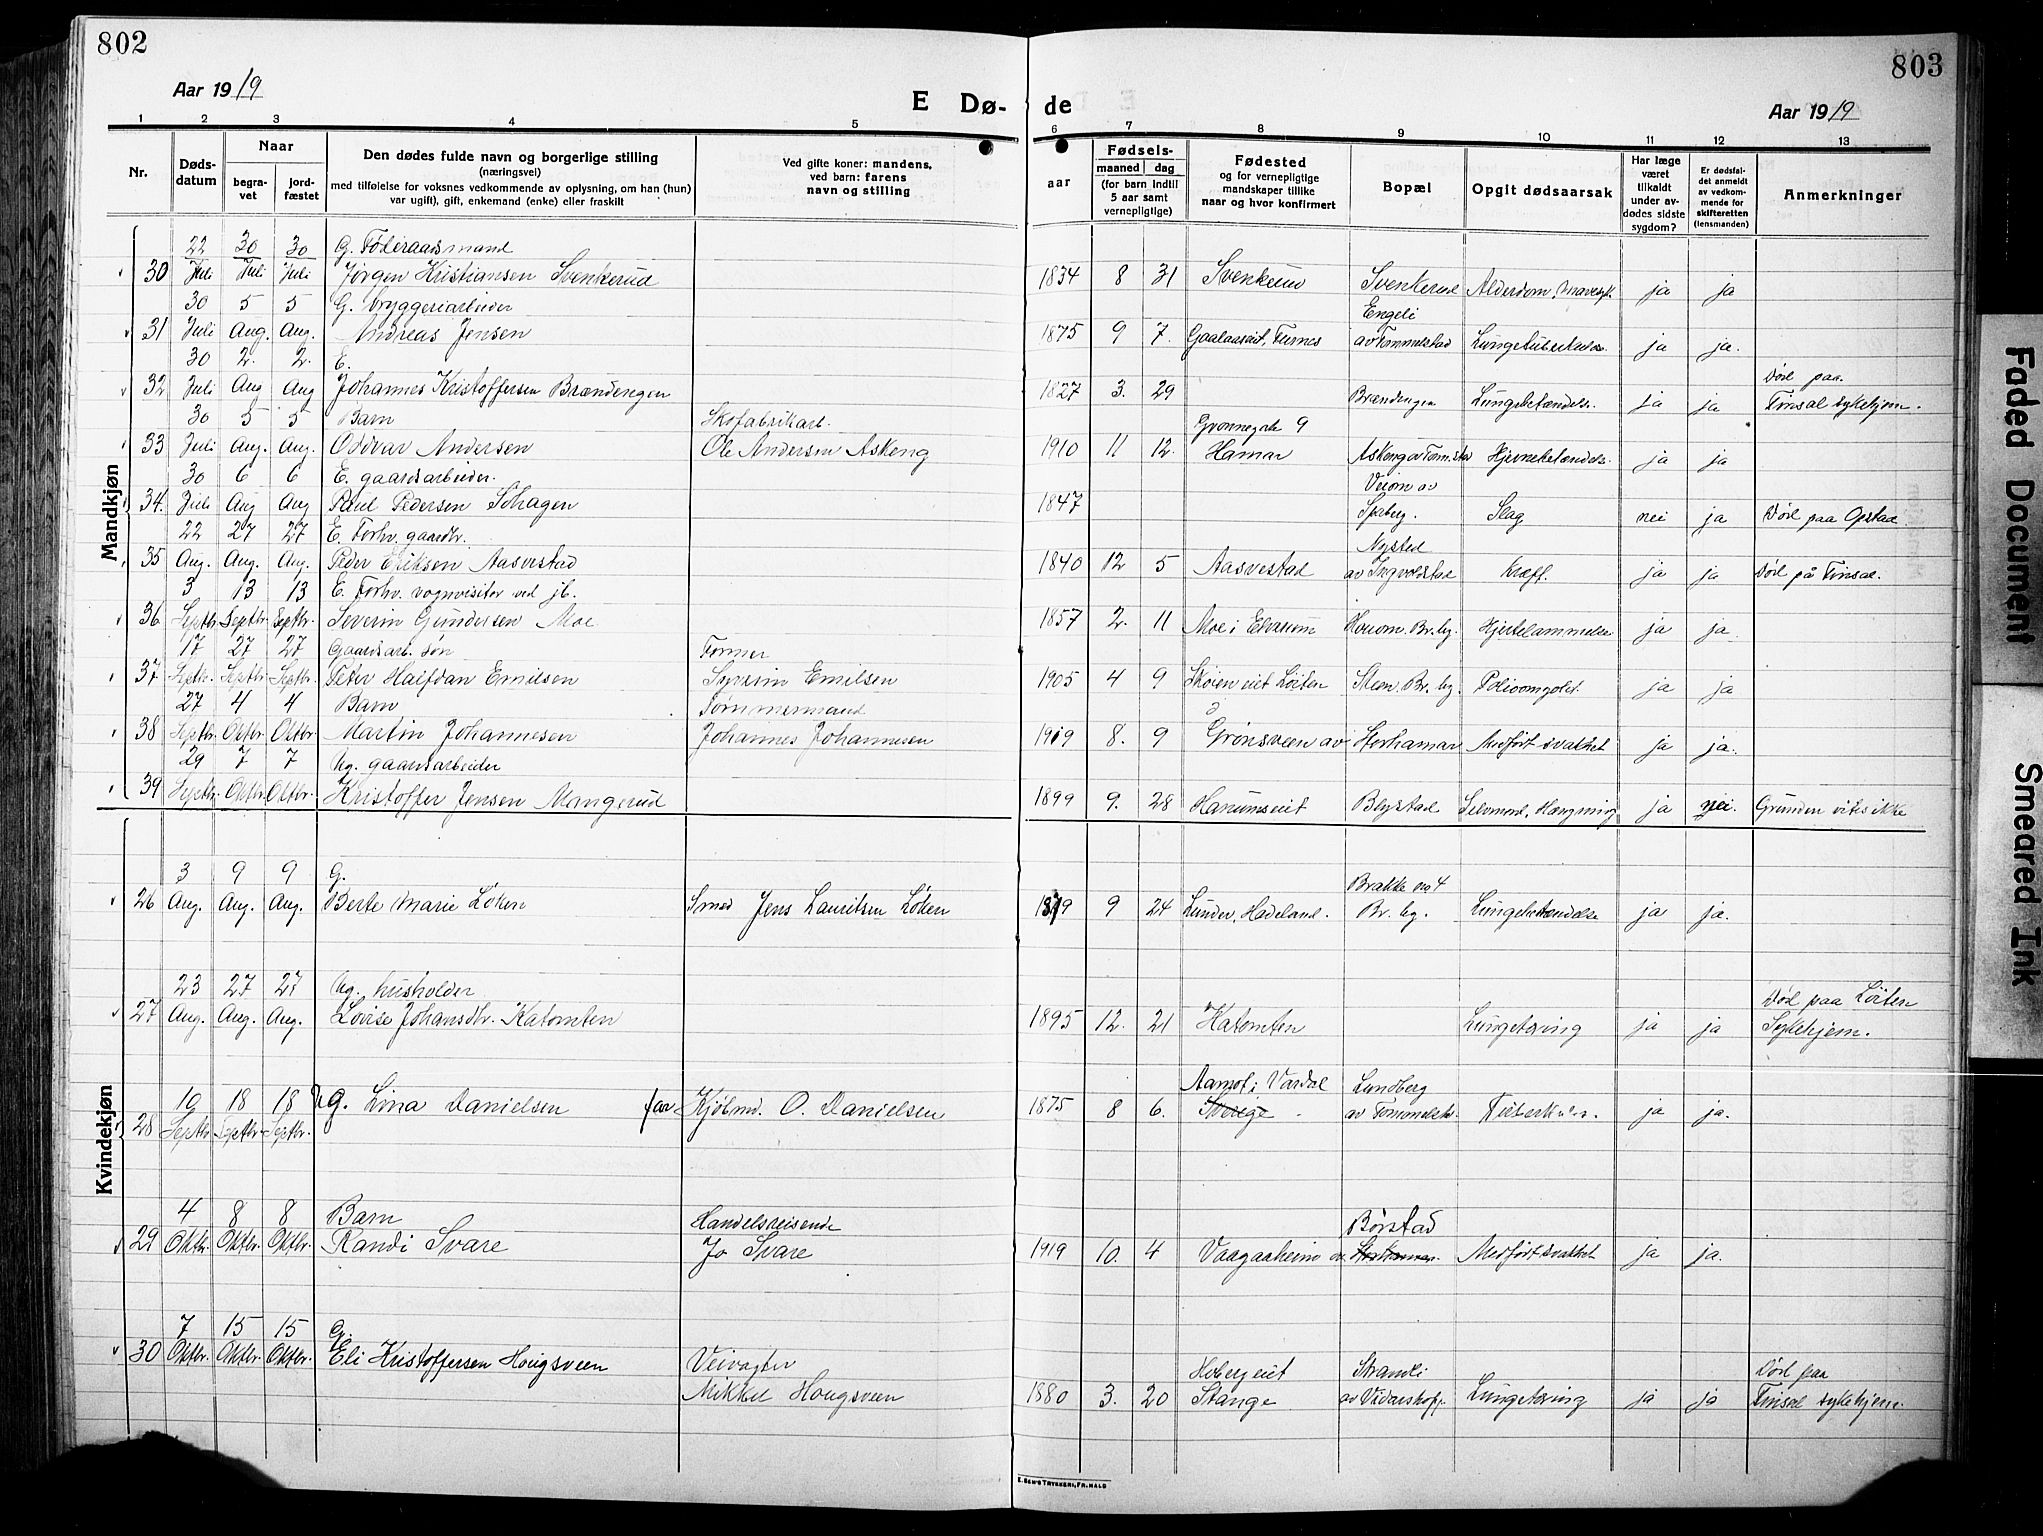 802
803
Aar 1919
E Dø-
de
Aar 1919
1 2 3 4 5 6 7 8 9 10 11 12 13
Nr.
Døds-
datum
Naar
begra-
vet
jord-
fæstet
Den dødes fulde navn og borgerlige stilling
(næringsvei)
med tilføielse for voksnes vedkommende av oplysning, om han (hun)
var ugift), gift, enkemand (enke) eller fraskilt
Ved gifte koner: mandens,
ved barn: farens
navn og stilling
Fødsels-
aar
maaned dag
(for barn indtil
5 aar samt
vernepligtige)
Fødested
og for vernepligtige
mandskaper tillike
naar og hvor konfirmert
Bopæl
Opgit dødsaarsak
Har læge
været
tilkaldt
under av-
dødes sidste
sygdom?
Er dødsfal-
det anmeldt
av vedkom-
mende for
skifteretten
(lensmanden)
Anmerkninger
Mandkjøn
22 30 30 G. Føderaadsmand
30 Juli Juli Juli Jørgen Kristiansen Svenkerud 1834 8 31 Svenkerud Svenkerud Alderdom, mavesyk. ja ja
30 5 5 G. bryggeriarbeider Engeli
31 Juli Aug. Aug. Andreas Jensen 1875 9 7. Gaalaaseiet, Furnes av Tommelstad Lungetuberkulos. ja ja.
30 2. 2. E. Død paa
32 Juli Aug Aug Johannes Kristoffersen Brændengen 1827 3. 29 Brændengen Lungebetændels. ja ja Finsal sykehjem.
30 5 5 Barn Skofabrikarb. Grønnegate 9
33 Juli Aug. Aug. Oddvar Andersen Ole Andersen Askeng 1910 11 12. Hamar Askeng av Tom.stad Hjernebetændels. ja ja
30 6 6 E. gaardsarbeider. Veiom av
34. Juli Aug Aug Paul Pedersen Sõhagen 1847 Spaberg. Slag nei ja Død paa Opstad
22 27 27 E. Forhv. gaardbr. Nysted
35 Aug. Aug. Aug. Peder Eriksen Aasvestad 1840 12 5 Aasvestad av Ingvoldstad Kræft. ja ja Død på Finsal.
3 13 13 E. Forhv. vognvisitør ved jb.
36 Septbr. Septbr. Septbr. Severin Gundersen Moe 1857 2. 11 Moe i Elverum Houom. Br.bg. Hjertelammelse ja ja.
17 27 27 Gaardsarb. søn Former
37 Septbr. Septbr. Septbr. Peter Halfdan Emilsen Severin Emilsen 1905 4 9 Skoien eiet Løiten Steen. Br.bg. Polioomyolit ja ja
27 4 4 Barn Tømmermand
38 Septbr. Oktbr Oktbr. Martin Johannesen Johannes Johannesen 1919 8. 9 Grønsveen av Storhamar Medfødt svakhet ja ja.
29 7 7 Ug. gaardsarbeider
39 Septbr. Oktbr. Oktbr. Kristoffer Jensen Mangerud 1899 9. 28 Hanumseiet Blystad Selvmord, Hængning ja nei. Grunden vites ikke
Kvindekjøn
3 9 9 G. Brakke no 4
26 Aug. Aug. Aug. Berte Marie Løken Smed Jens Lauritsen Løken 1879 9 24 Lunder, Hadeland. Br. bg. Lungebetændelse ja ja.
23 27 27 Ug. husholder Død paa Löiten
27 Aug. Aug. Aug. Lovise Johansdtr. Katomten 1895 12. 21 Katomten Lungetæring ja ja Sykehjem.
Aamot i Vardal Lundberg
10 18 18 G. Lina Danielsen far Kjøbmd. O. Danielsen 1875 8 6. Sverige av Tommelst. Tuberkulos. ja ja.
28 Septbr. Septbr. Septbr.
4 8 8 Barn Handelsreisende Børstad
29 Oktbr. Oktbr. Oktbr. Randi Svare Jo Svare 1919 10. 4 Vaagaaheim av Storhamar. Medfødt svakhet ja ja.
7 15 15 G.
30 Oktbr. Oktbr. Oktbr. Eli Kristoffersen Hougsveen Veivogter Hoberg eiet Strandli Død paa
Mikkel Hougsveen 1880 3. 20 Stange av Vidarshof. Lungetæring ja ja Finsal sykehjem.
E. Sem's Trykkeri, Fr.hald
Faded Document
Smeared Ink